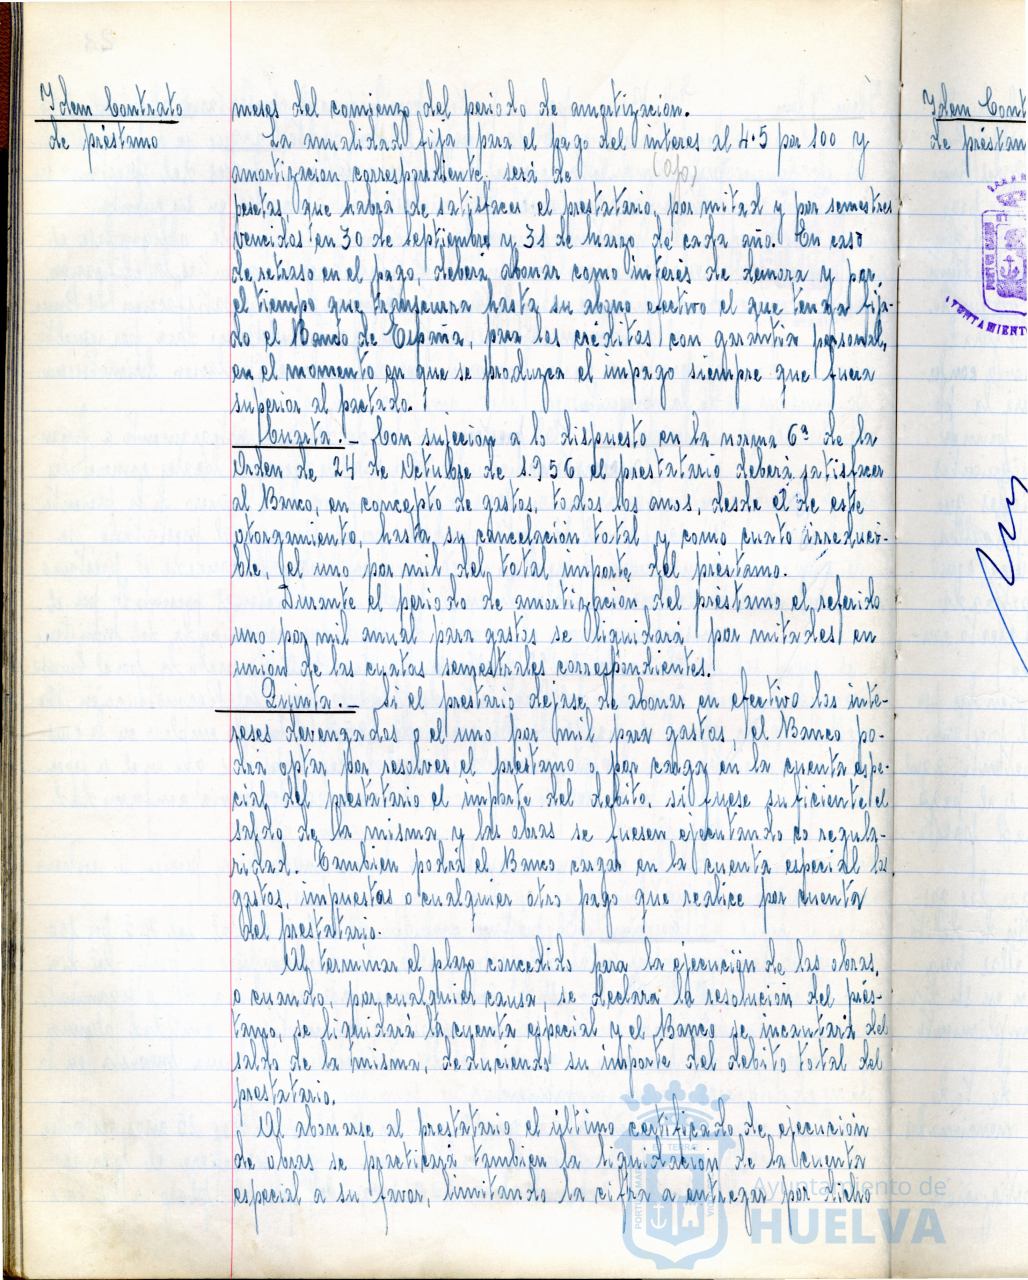 Idem Contrato
de préstamo
meses del comienzo del periodo de amortización.
La anualidad fija para el pago del interes al 4.5 por 100 y
amortización correspondiente, será de
(ojo)
pesetas, que habrá de satisfacer el prestatario, por mitad y por semestres
vencidos en 30 de septiembre y 31 de marzo de cada año. En caso
de retraso en el pago, deberá abonar como interés de demora y por
el tiempo que transcurra hasta su abono efectivo el que tenga fija-
do el Banco de España, para los créditos con garantia personal,
en el momento en que se produzca el impago siempre que fuera
superior al pactado.
Cuarta.- Con sujeción a lo dispuesto en la norma 6ª de la
Orden de 24 de Octubre de 1.956 el prestatario deberá satisfacer
al Banco, en concepto de gastos, todos los años, desde el de este
otorgamiento, hasta su cancelación total y como cuota irreduci-
ble, el uno por mil del total importe del préstamo.
Durante el periodo de amortización del préstamo el referido
uno por mil anual para gastos se liquidará por mitades en
unión de las cuotas semestrales correspondientes.
Quinta.- Si el prestario dejase de abonar en efectivo los inte-
reses devengados o el uno por mil para gastos, el Banco po-
drá optar por resolver el préstamo o por cargar en la cuenta espe-
cial del prestatario el importe del débito, si fuese suficiente el
saldo de la misma y las obras se fuesen ejecutando co regula-
ridad. Tambien podrá el Banco cargar en la cuenta especial los
gastos, impuestos o cualquier otro pago que realice por cuenta
del prestatario.
Al terminar el plazo concedido para la ejecución de las obras,
o cuando, por cualquier causa, se declara la resolución del prés-
tamo, se liquidará la cuenta especial y el Banco se incautará del
saldo de la misma, deduciendo su importe del debito total del
prestatario.
Al abonarse al prestatario el último certificado de ejecución
de obras se practicará tambien la liquidación de la cuenta
especial a su favor, limitando la cifra a entregar por dicho
Idem Cont
de préstam
AYUNTAMIENTO
Ayuntamiento de
HUELVA